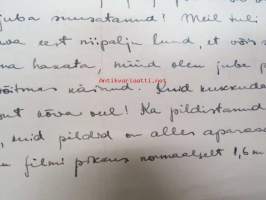 juba suusatanud! Meil tuli
eest niipalju lund, et võis
hakata, nüüd olen jube
võitmas käinud. Kuid kukkuda
kõva veel! Ka pildistanud
, kuid pildid on alles aparaa
filmi pikkus normaalselt 1,6 m
Antikvariaatti.net